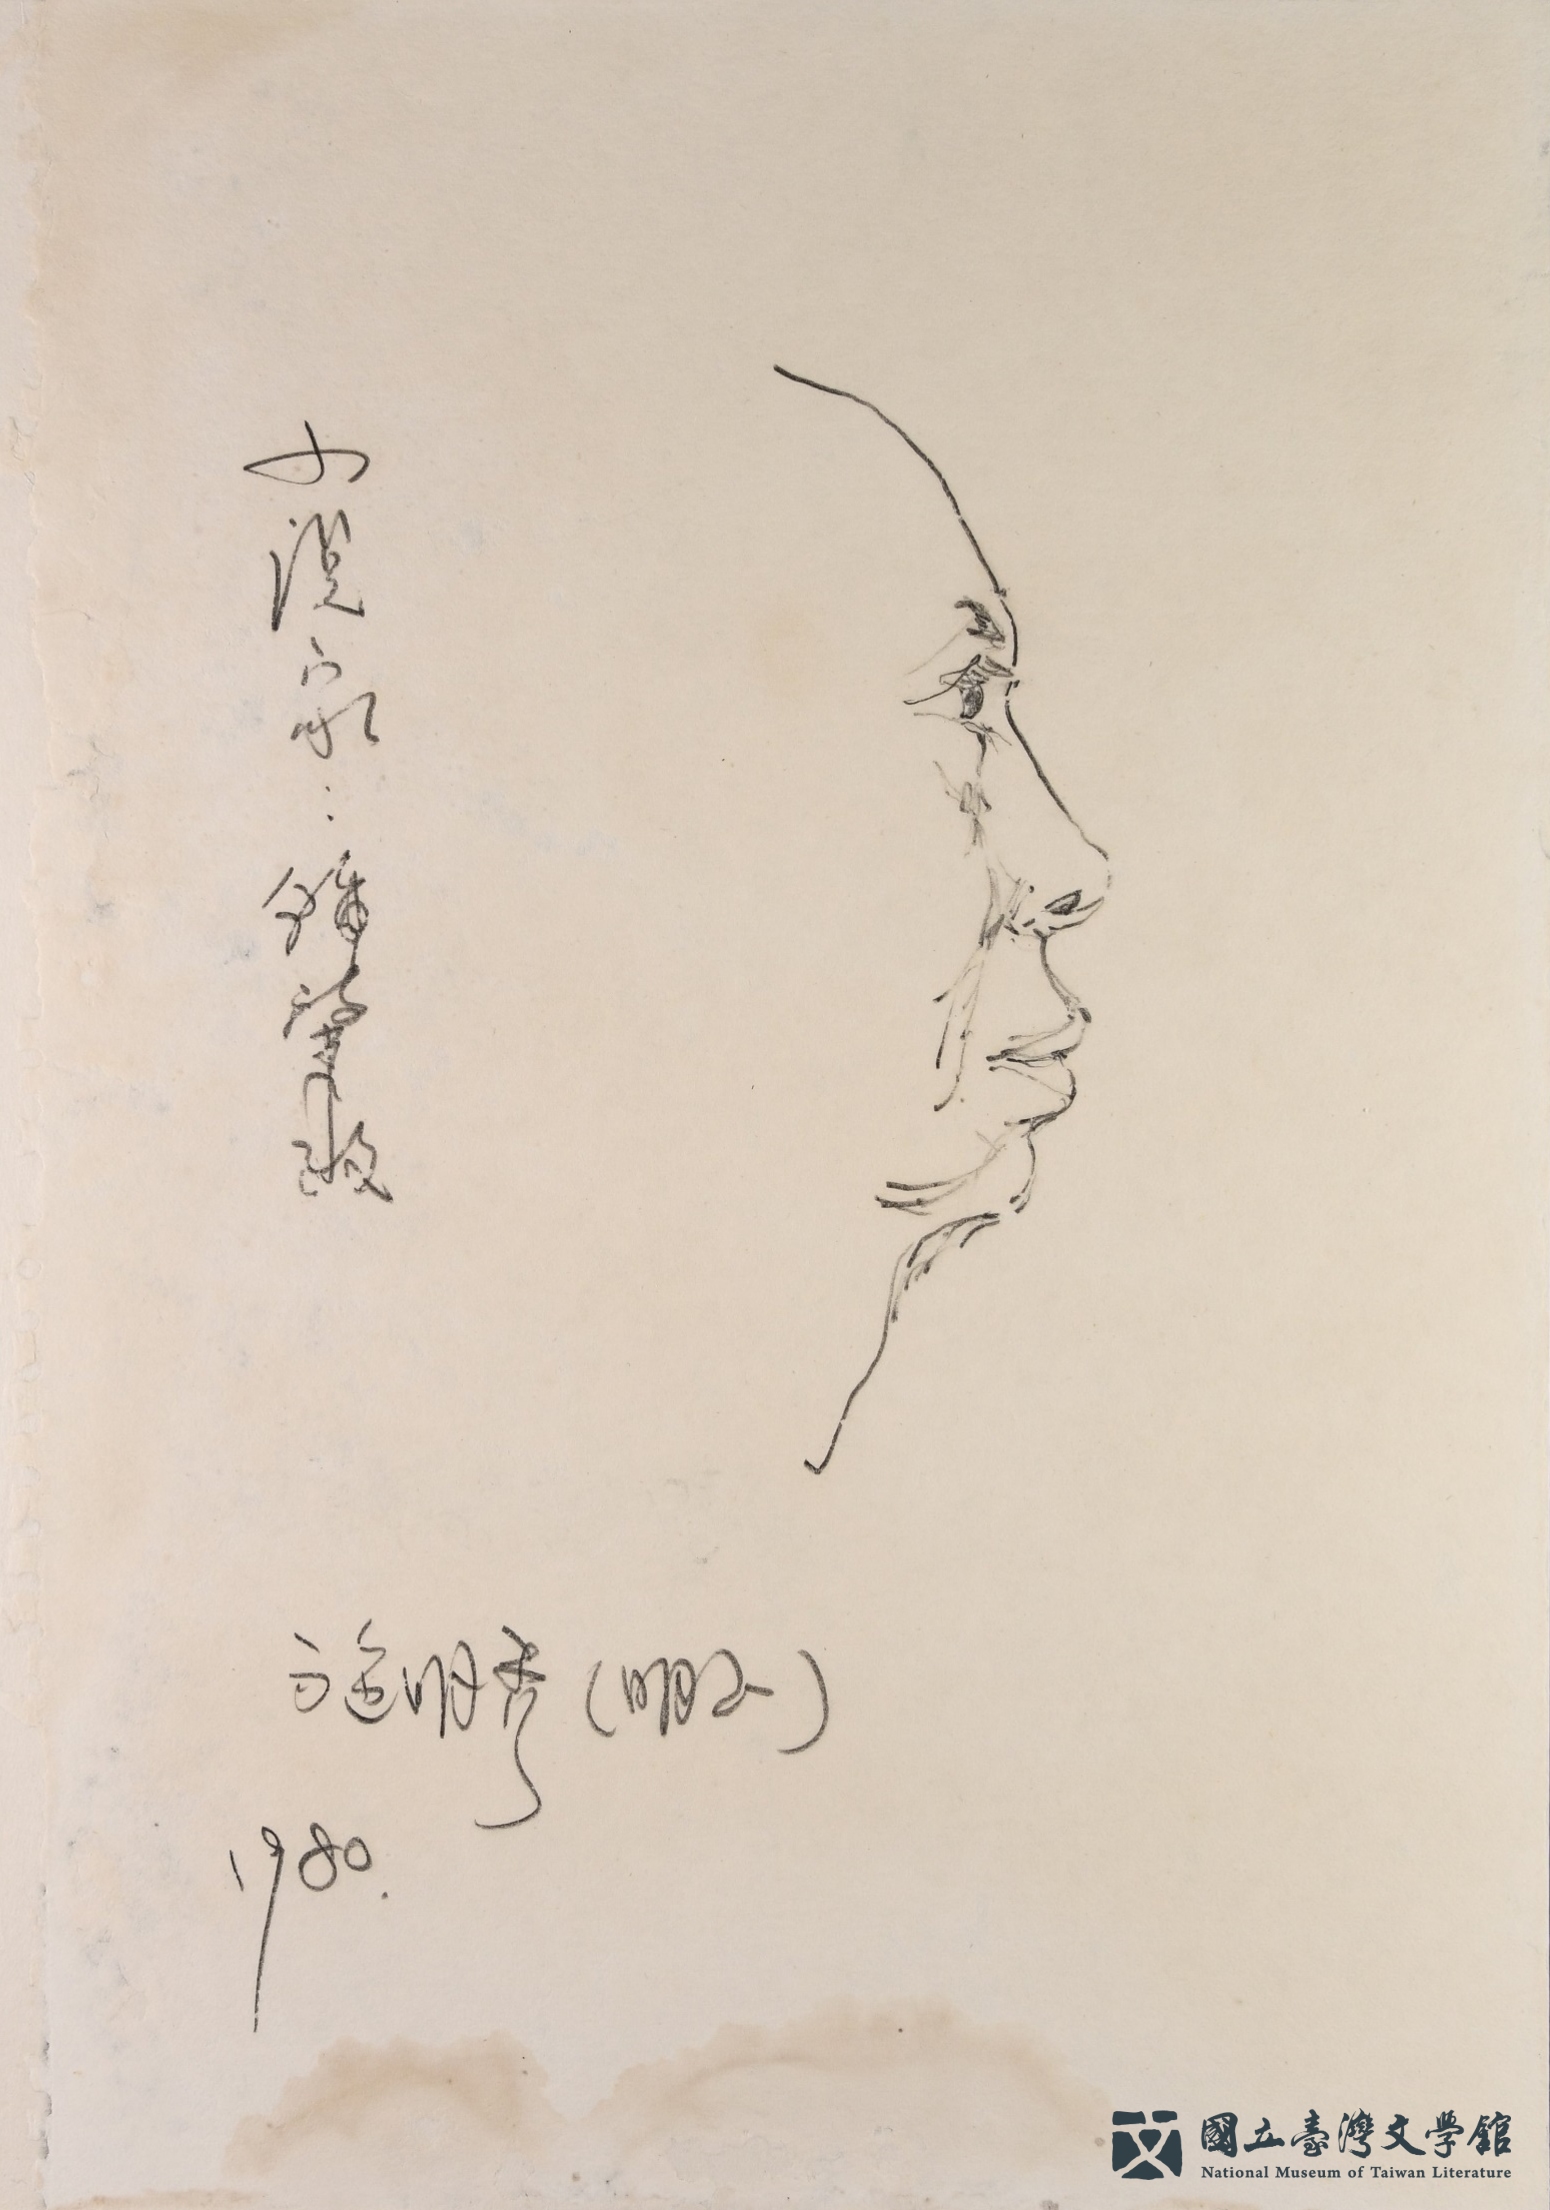 小說家：鍾肇政
施明秀（明正）
1980.
國立臺灣文學館
National Museum of Taiwan Literature